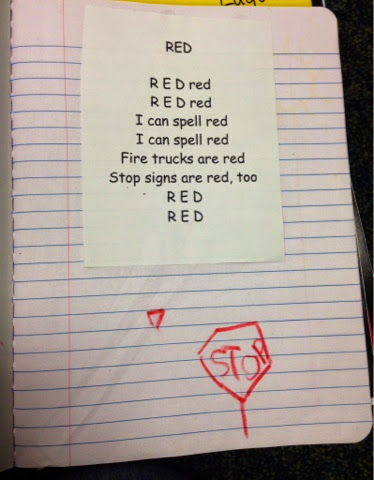 RED
R E D red
R E D red
I can spell red
I can spell red
Fire trucks are red
Stop signs are red, too
R E D
R E D
STOP